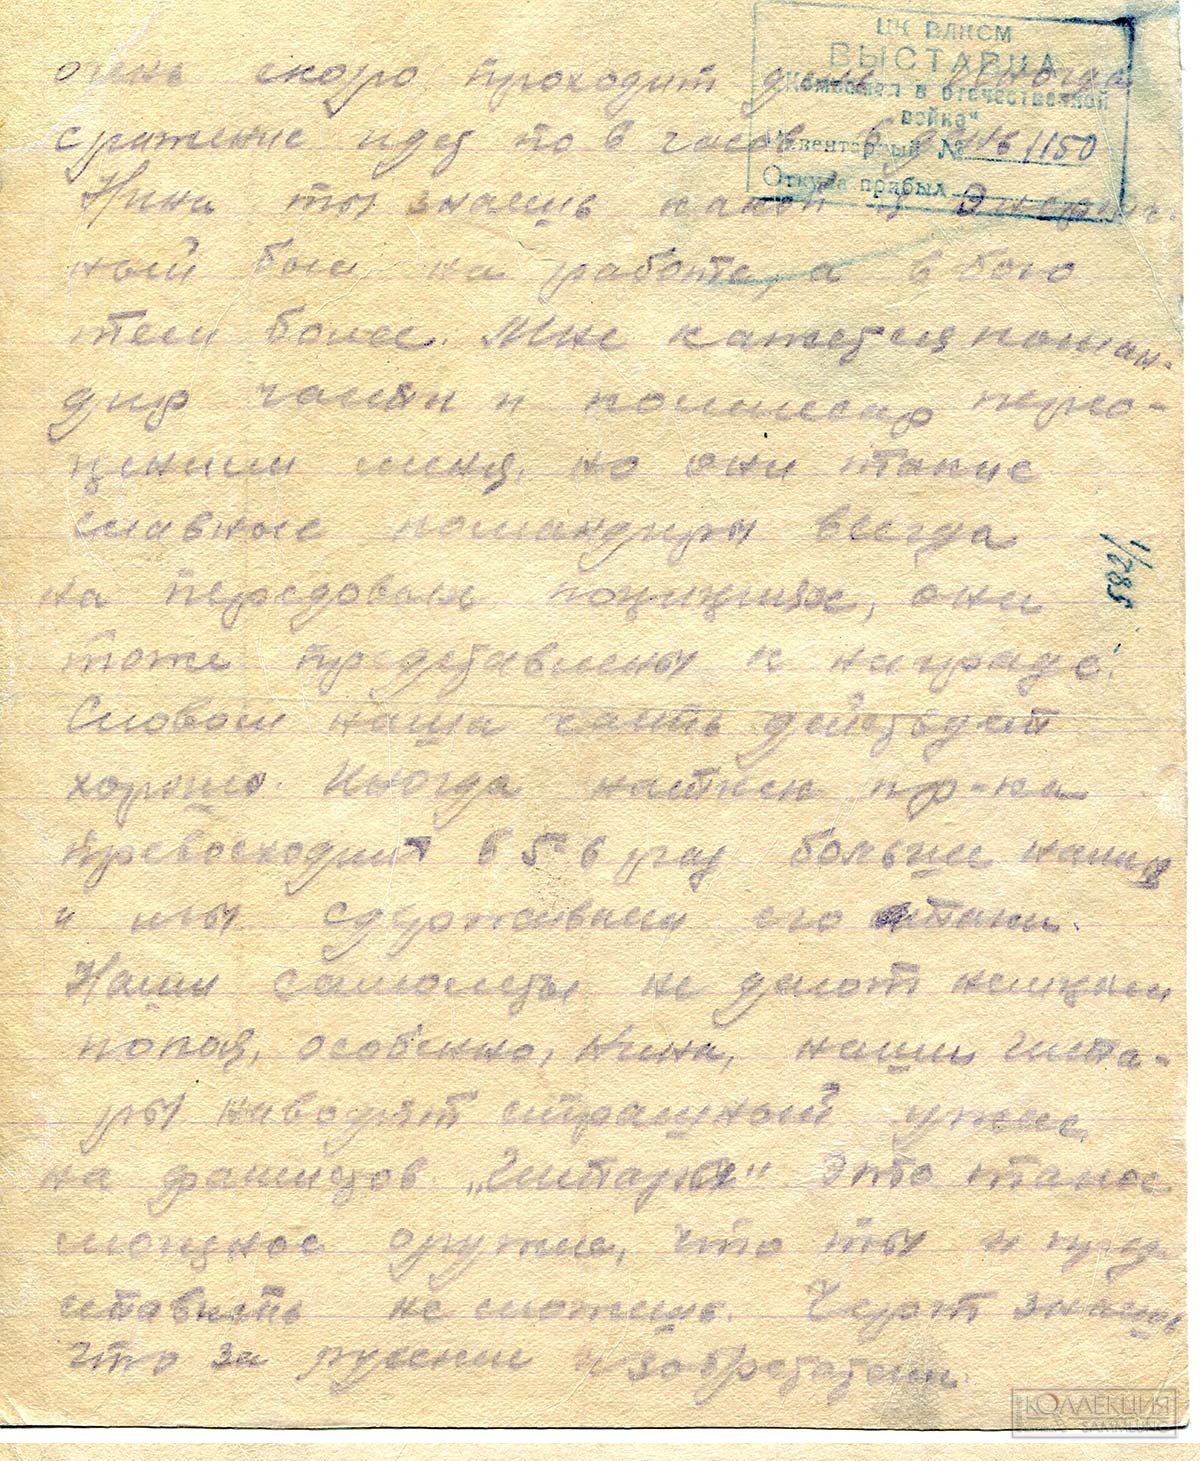 ЦК ВЛКСМ
ВЫСТАВКА
"Комсомол в отечественной
войне"
Инвентарный № 1150
Откуда прибыл
очень скоро проходит день. Иногда
сражение идет по 8 часов в день
Нина ты знаешь какой я Энергич-
ный был на работе, а в бою
тем более. Мне кажется коман-
дир части и комиссар пере-
ценили меня, но они такие
славные командиры всегда
на передовых позициях, они
тоже представлены к награде.
Словом наша часть действует
хорошо. Иногда натиск пр-ка
превосходит в 5-6 раз больше наших
и мы сдерживаем его атаки.
Наши самолеты не дают немцам
покоя, особенно, Нина, наши гита-
ры наводят страшный ужас
на фашистов. "Гитары" Это такое
мощное оружие, что ты и пред
ставить не можешь. Черт знает
что за русские изобретатели.
1/285
КОЛЛЕКЦИЯ
SAMMLUNG